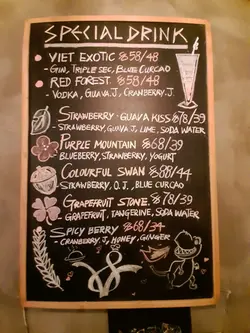 SPECIAL DRINK
VIET EXOTIC 58/48
- GIN, TRIPLE SEC, BLUE CURCAO
RED FOREST 58/48
- VODKA, GUAVA J, CRANBERRY J.
STRAWBERRY-GUAVA KISS 78/39
- STRAWBERRY, GUAVA J, LIME, SODA WATER
PURPLE MOUNTAIN 68/39
BLUEBERRY, STRAWBERRY, YOGURT
COLOURFUL SWAN 88/44
- STRAWBERRY, O.J, BLUE CURCAO
GRAPEFRUIT STONE. 78/39
- GRAPEFRUIT, TANGERINE, SODA WATER
SPICY BERRY 68/34
- CRANBERRY J, HONEY, GINGER